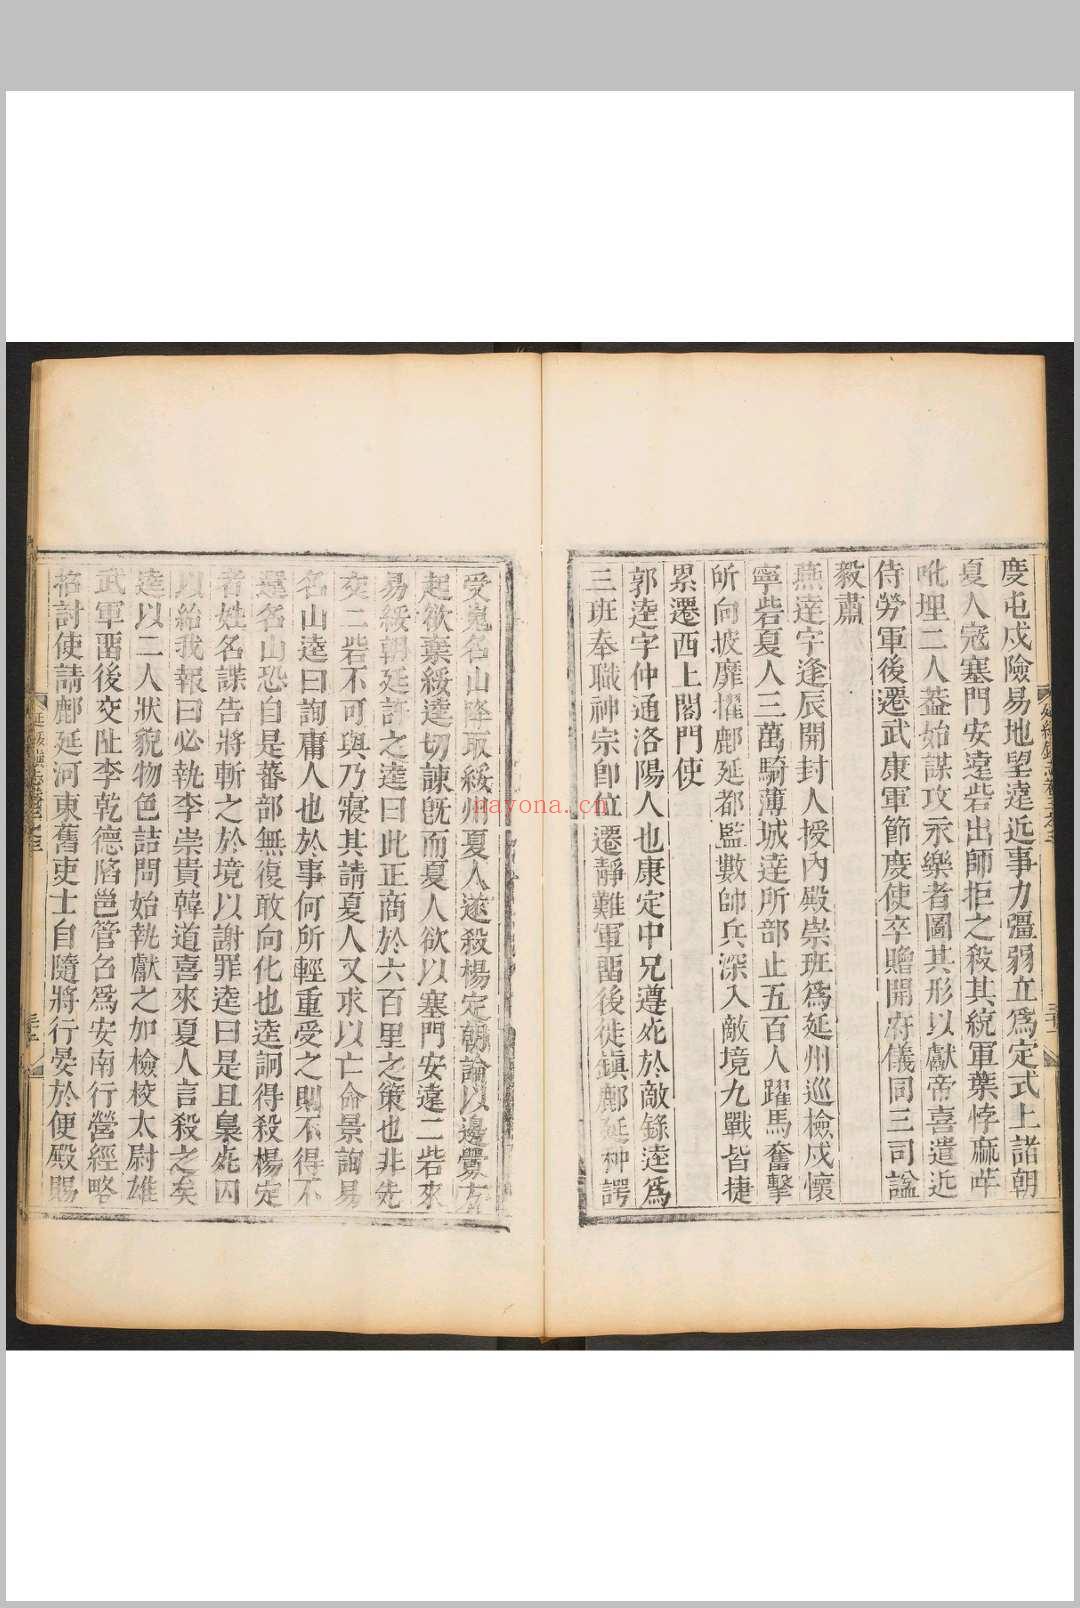 慶屯戍險易地望遠近事力彊弱立爲定式上諸朝
夏人寇塞門安遠砦出師拒之殺其統軍葉悖麻咩
吪埋二人葢始謀攻永樂者圖其形以獻帝喜遣近
侍勞軍後遷武康軍節度使卒贈開府儀同三司諡
毅肅
燕達字逢辰開封人授內殿崇班爲延州巡檢戍懷
寧砦夏人三萬騎薄城達所部止五百人躍馬奮擊
所向披靡擢鄜延都監數帥兵深入敵境九戰皆捷
累遷西上閤門使
郭逵字仲通洛陽人也康定中兄遵死於敵錄逵爲
三班奉職神宗卽位遷靜難軍留後徙鎭鄜延种諤
受嵬名山降取綏州夏人遂殺楊定朝論以邊釁方
起欲棄綏逵切諫旣而夏人欲以塞門安遠二砦來
易綏朝廷許之逵曰此正商於六百里之策也非先
交二砦不可與乃寢其請夏人又求以亡命景詢易
名山逵曰詢庸人也於事何所輕重受之則不得不
還名山恐自是蕃部無復敢向化也逵詗得殺楊定
者姓名諜告將斬之於境以謝罪逵曰是且梟死囚
以紿我報曰必執李崇貴韓道喜來夏人言殺之矣
逵以二人狀貌物色詰問始執獻之加檢校太尉雄
武軍留後交阯李乾德陷邕管召爲安南行營經略
招討使請鄜延河東舊吏士自隨將行宴於便殿賜
nayona.cn